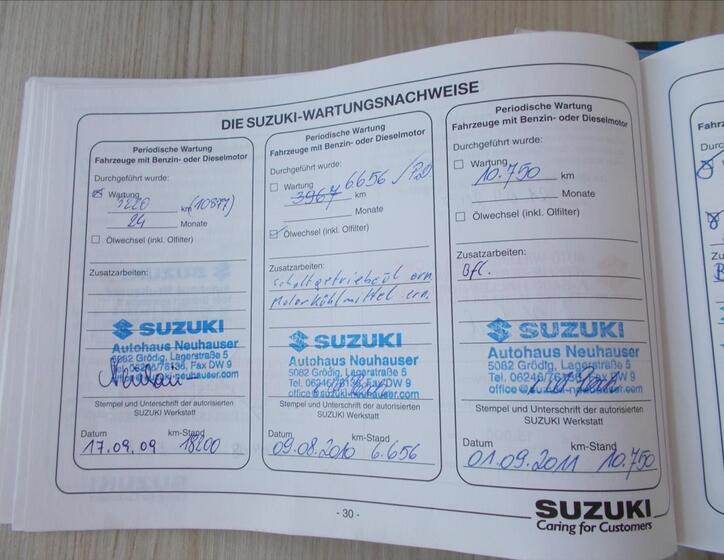 DIE SUZUKI-WARTUNGSNACHWEISE
Periodische Wartung
Fahrzeuge mit Benzin- oder Dieselmotor
Durchgeführt wurde:
Wartung
km (10877)
24 Monate
Ölwechsel (inkl. Ölfilter)
Zusatzarbeiten:
SUZUKI
Autohaus Neuhauser
5082 Grödig, Lagerstraße 5
Tel. 06246/76136, Fax DW 9
office@suzuki-neuhauser.com
Stempel und Unterschrift der autorisierten
SUZUKI Werkstatt
Datum km-Stand
17.09.09 18200
Periodische Wartung
Fahrzeuge mit Benzin- oder Dieselmotor
Durchgeführt wurde:
Wartung 6656
3967 km
Monate
Ölwechsel (inkl. Ölfilter)
Zusatzarbeiten:
Schaltgetriebeöl ern
Motorkühlmittel ern.
SUZUKI
Autohaus Neuhauser
5082 Grödig, Lagerstraße 5
Tel. 06246/76136, Fax DW 9
office@suzuki-neuhauser.com
Stempel und Unterschrift der autorisierten
SUZUKI Werkstatt
Datum km-Stand
09.08.2010 6.656
Periodische Wartung
Fahrzeuge mit Benzin- oder Dieselmotor
Durchgeführt wurde:
Wartung
10.750 km
Monate
Ölwechsel (inkl. Ölfilter)
Zusatzarbeiten:
Bfl.
SUZUKI
Autohaus Neuhauser
5082 Grödig, Lagerstraße 5
Tel. 06246/76136, Fax DW 9
office@suzuki-neuhauser.com
Stempel und Unterschrift der autorisierten
SUZUKI Werkstatt
Datum km-Stand
01.09.2011 10.750
- 30 -
SUZUKI
Caring for Customers